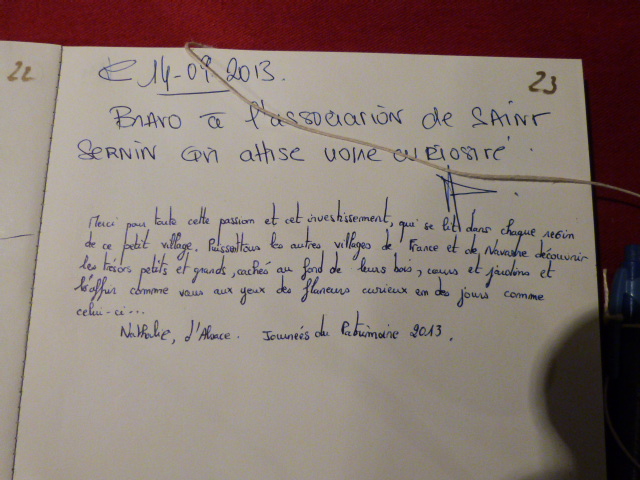 22
23
Le 14-09 2013.
BRAVO à l'association de SAINT
SERNIN qui attise votre curiosité.
Merci pour toute cette passion et cet investissement, qui se lit dans chaque recoin
de ce petit village. Puissent tous les autres villages de France et de Navarre découvrir
les trésors petits et grands, cachés au fond de leurs bois, cours et jardins et
l'offrir comme vous aux yeux des flaneurs curieux en des jours comme
celui-ci...
Nathalie, d'Alsace. Journées du Patrimoine 2013.